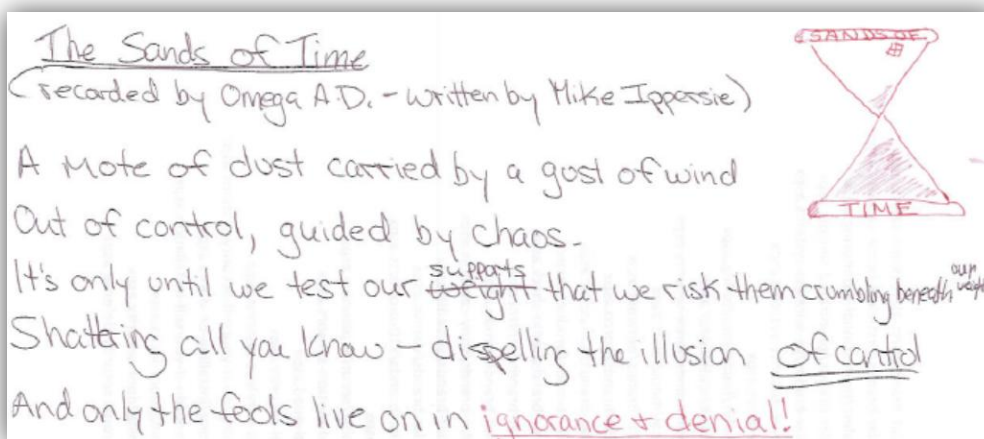 The Sands of Time
SANDS OF
(recorded by Omega A.D. - written by Mike Ippersie)
A mote of dust carried by a gust of wind
TIME
Out of control, guided by chaos -
It's only until we test our weight supports that we risk them crumbling beneath our weight
Shattering all you know - dispelling the illusion of control
And only the fools live on in ignorance + denial!